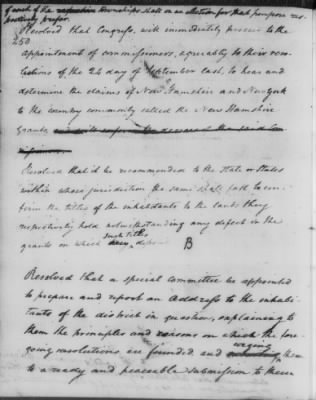 of each of the townships shall in an election for that purpose res-
pectively prefer.
Resolved that Congress, will immediately proceed to the
250
appointment of commissioners, agreeably to their reso-
lutions of the 24 day of September last, to hear and
determine the claims of New Hamshire and New York
to the country commonly called the New Hamshire
Grants,
Resolved that it be recommended to the State or States
within whose jurisdiction the same shall fall to con-
firm the titles of the inhabitants to the lands they
respectively hold notwithstanding any defect in the
grants on which such titles depend B
Resolved that a special committee be appointed
to prepare and report an Address to the inhabi-
tants of the district in question, explaining to
them the principles and reasons on which the fore-
going resolutions are founded and urging them
to a ready and peaceable submission to them